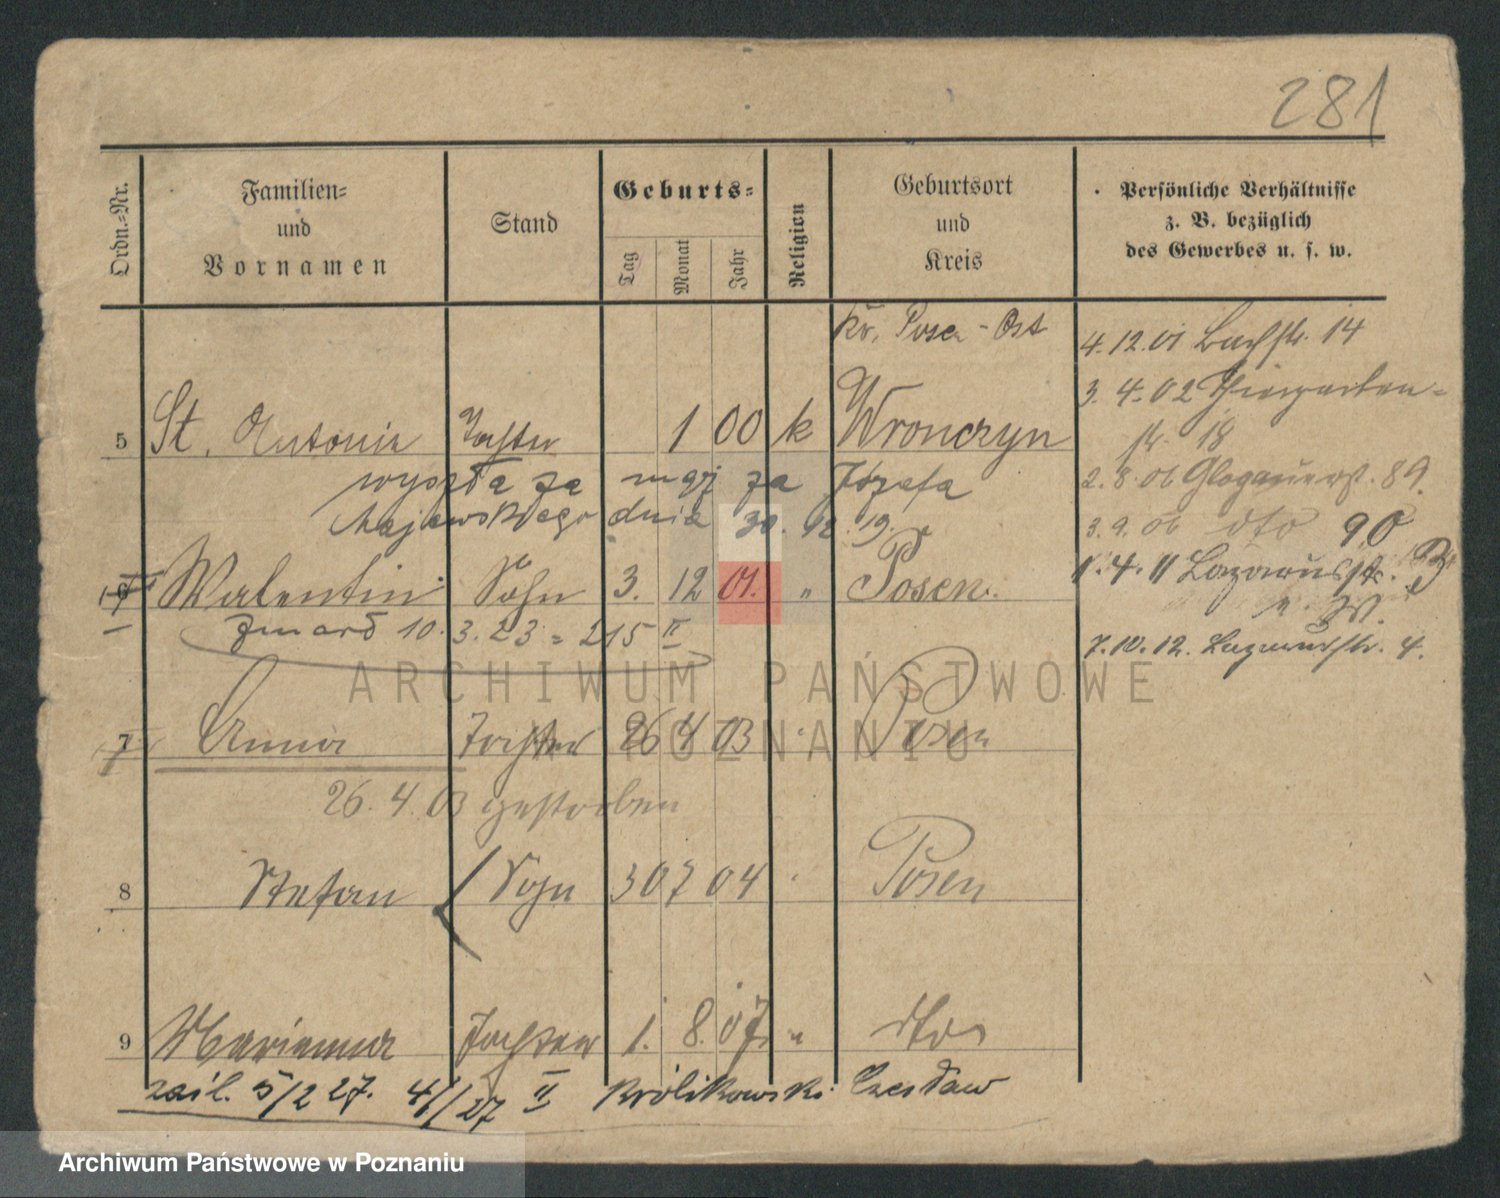 281
Ordn.-Nr.
Familien-
und
Vornamen
Stand
Geburts-
Tag
Monat
Jahr
Religion
Geburtsort
und
Kreis
Persönliche Verhältnisse
z. B. bezüglich
des Gewerbes u. s. w.
Kr. Posen-Ost
4.12.01 Bachstr. 14
3.4.02 Thiergarten-
str. 18
5 St. Antonie Tochter 1 00 k Wronczyn
wyszła za mąż za Józefa
Majewskiego dnia 30.12.19.
2.8.06 Glogauerst. 89.
3.9.06 dto 90
6 Walentin Sohn 3. 12 01. " Posen.
1.4.11 Lazarusstr.
zmarł 10.3.23 = 215 II
7.10.12. Lazarusstr. 4.
ARCHIWUM PAŃSTWOWE
W POZNANIU
7 Anna Tochter 26 4 03 " Posen
26.4.03 gestorben
8 Stefan Sohn 30 7 04 " Posen
9 Marianna Tochter 1. 8. 07 " dto
zaśl. 5/2 27. 41/27 II Królikowski Czesław
Archiwum Państwowe w Poznaniu